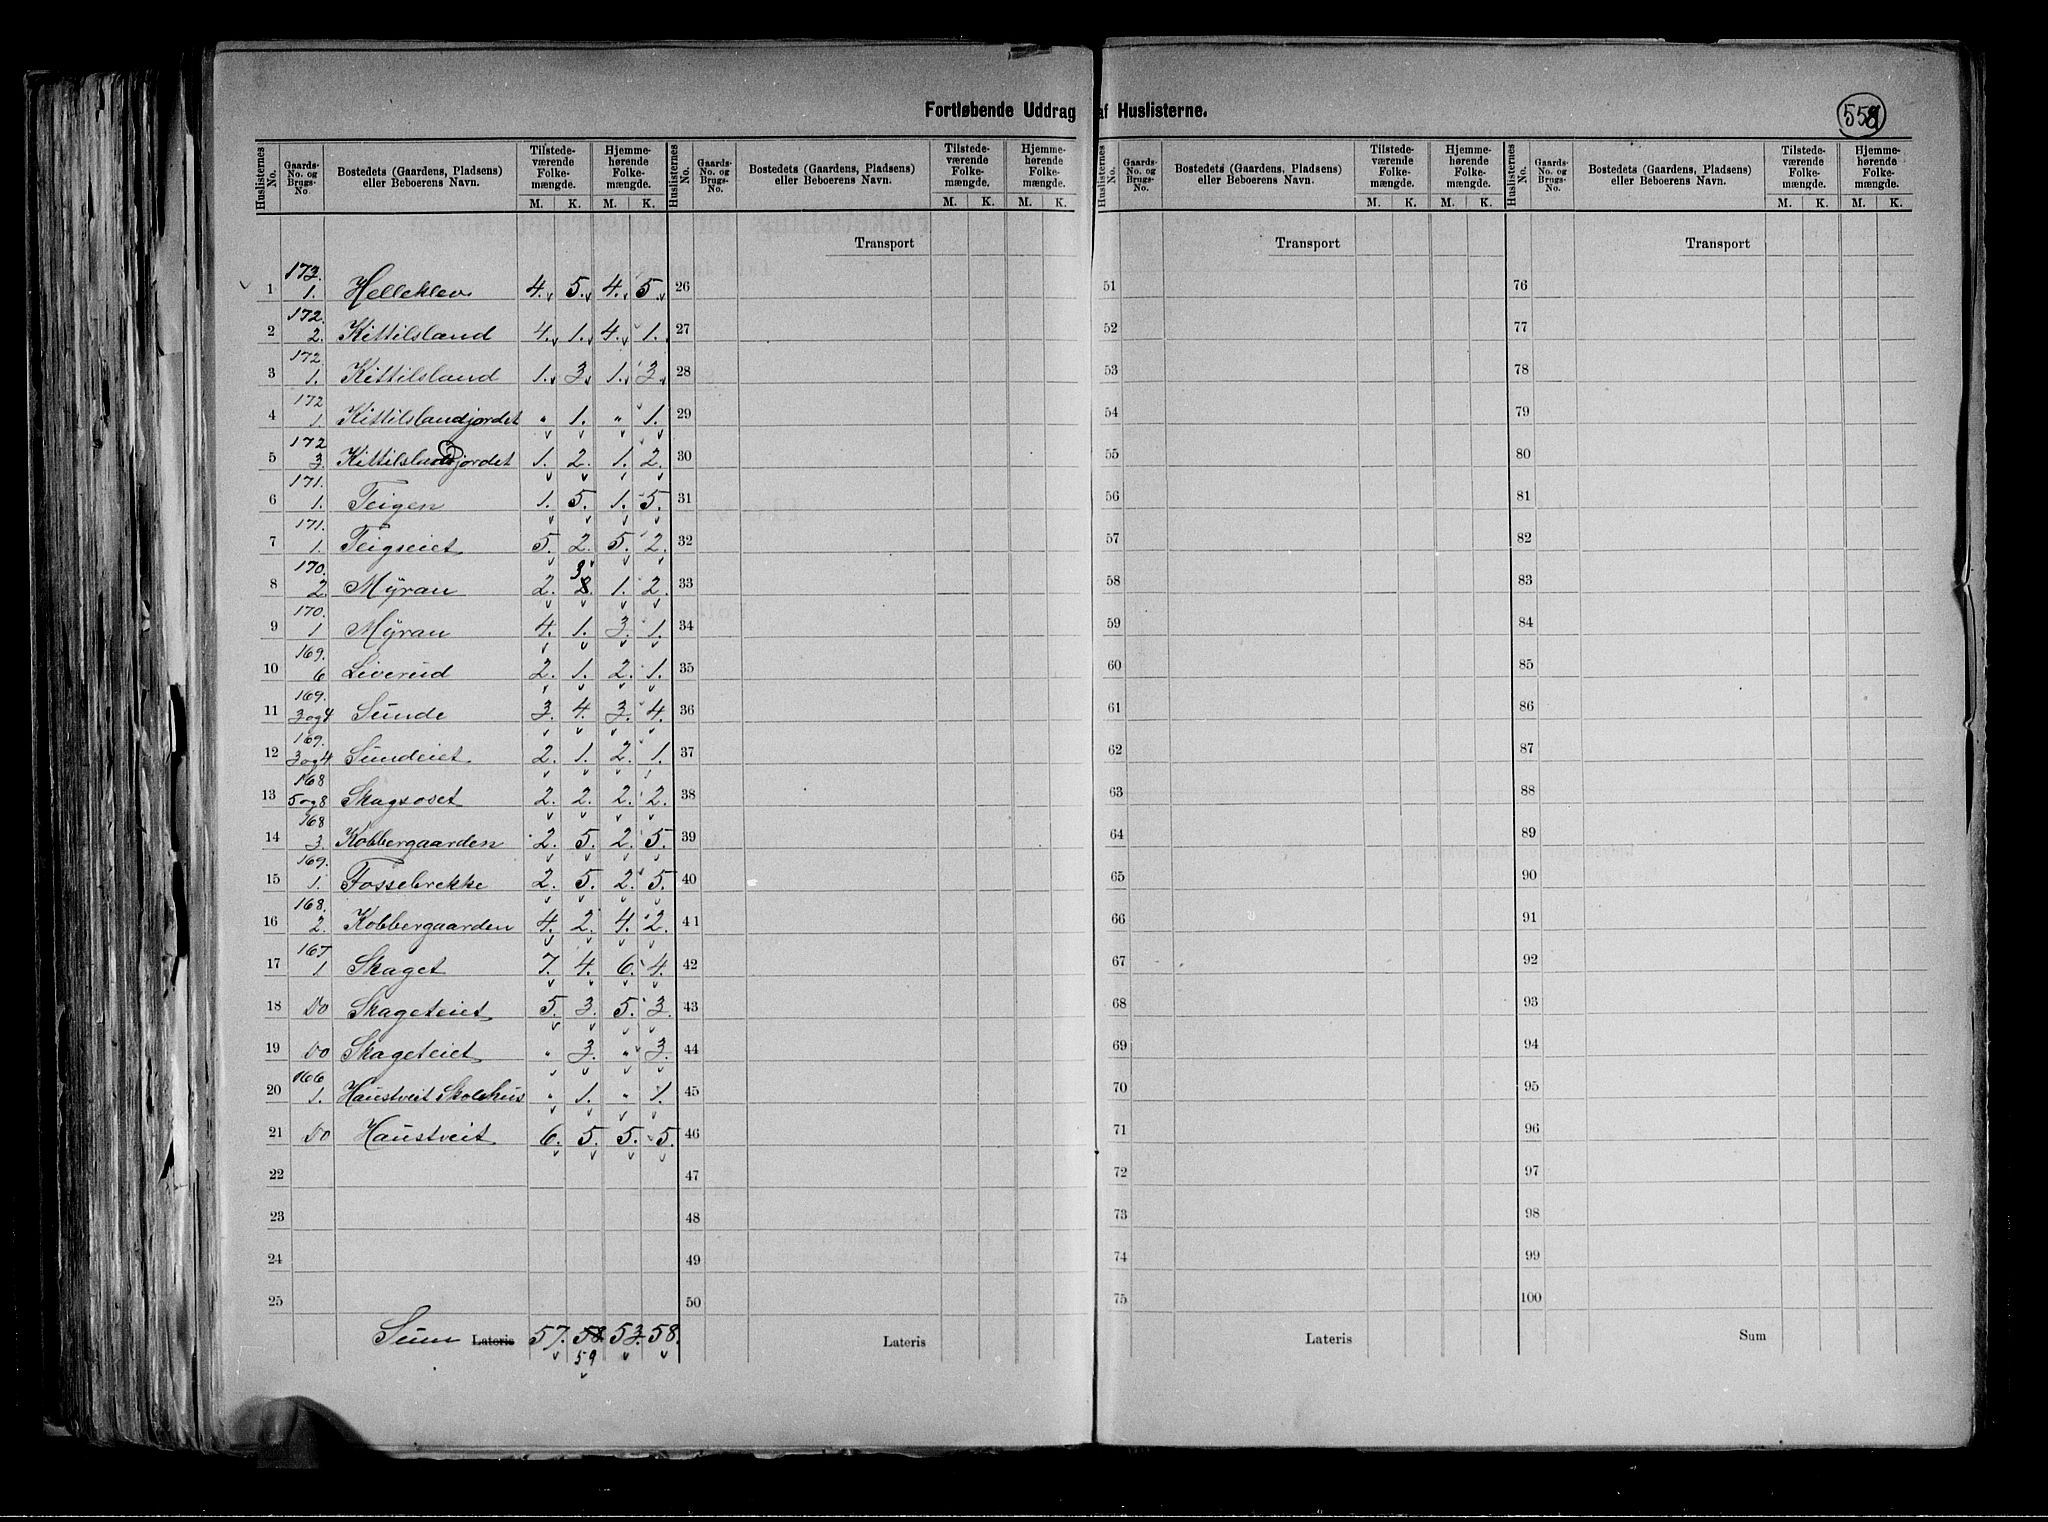 Fortløbende Uddrag af Huslisterne.
558
Huslisternes No. | Gaards-No. og Brugs-No. | Bostedets (Gaardens, Pladsens) eller Beboerens Navn. | Tilstedeværende Folkemængde. M. K. | Hjemmehørende Folkemængde. M. K.
Huslisternes No. | Gaards-No. og Brugs-No. | Bostedets (Gaardens, Pladsens) eller Beboerens Navn. | Tilstedeværende Folkemængde. M. K. | Hjemmehørende Folkemængde. M. K.
Huslisternes No. | Gaards-No. og Brugs-No. | Bostedets (Gaardens, Pladsens) eller Beboerens Navn. | Tilstedeværende Folkemængde. M. K. | Hjemmehørende Folkemængde. M. K.
Huslisternes No. | Gaards-No. og Brugs-No. | Bostedets (Gaardens, Pladsens) eller Beboerens Navn. | Tilstedeværende Folkemængde. M. K. | Hjemmehørende Folkemængde. M. K.
Transport Transport Transport
1 173. 1. Helleklev 4. 5. 4. 5. 26 51 76
2 172. 2. Kittilsland 4. 1. 4. 1. 27 52 77
3 172 1. Kittilsland 1. 3. 1. 3. 28 53 78
4 172 1. Kittilslandjordet " 1. " 1. 29 54 79
5 172 3. Kittilslandjordet 1. 2. 1. 2. 30 55 80
6 171. 1. Teigen 1. 5. 1. 5. 31 56 81
7 171. 1. Teigseiet 5. 2. 5. 2. 32 57 82
8 170. 2. Myran 2. 3 1. 2. 33 58 83
9 170. 1 Myran 4. 1. 3. 1. 34 59 84
10 169. 6 Liverud 2. 1. 2. 1. 35 60 85
11 169. 3 og 4 Sunde 3. 4. 3. 4. 36 61 86
12 169. 3 og 4 Sundeiet 2. 1. 2. 1. 37 62 87
13 168 5 og 8 Skagsoset 2. 2. 2. 2. 38 63 88
14 168 3. Kobbergaarden 2. 5. 2. 5. 39 64 89
15 169. 1. Fossebrekke 2. 5. 2. 5. 40 65 90
16 168. 2. Kobbergaarden 4. 2. 4. 2. 41 66 91
17 167. 1 Skaget 7. 4. 6. 4. 42 67 92
18 Do Skageteiet 5. 3. 5. 3. 43 68 93
19 Do Skageteiet " 3. " 3. 44 69 94
20 166 1. Haustveit Skolehus " 1. " 1. 45 70 95
21 Do Haustveit 6. 5. 5. 5. 46 71 96
22 47 72 97
23 48 73 98
24 49 74 99
25 50 75 100
Sum Lateris 57. 58. 53. 58. Lateris Lateris Sum
59